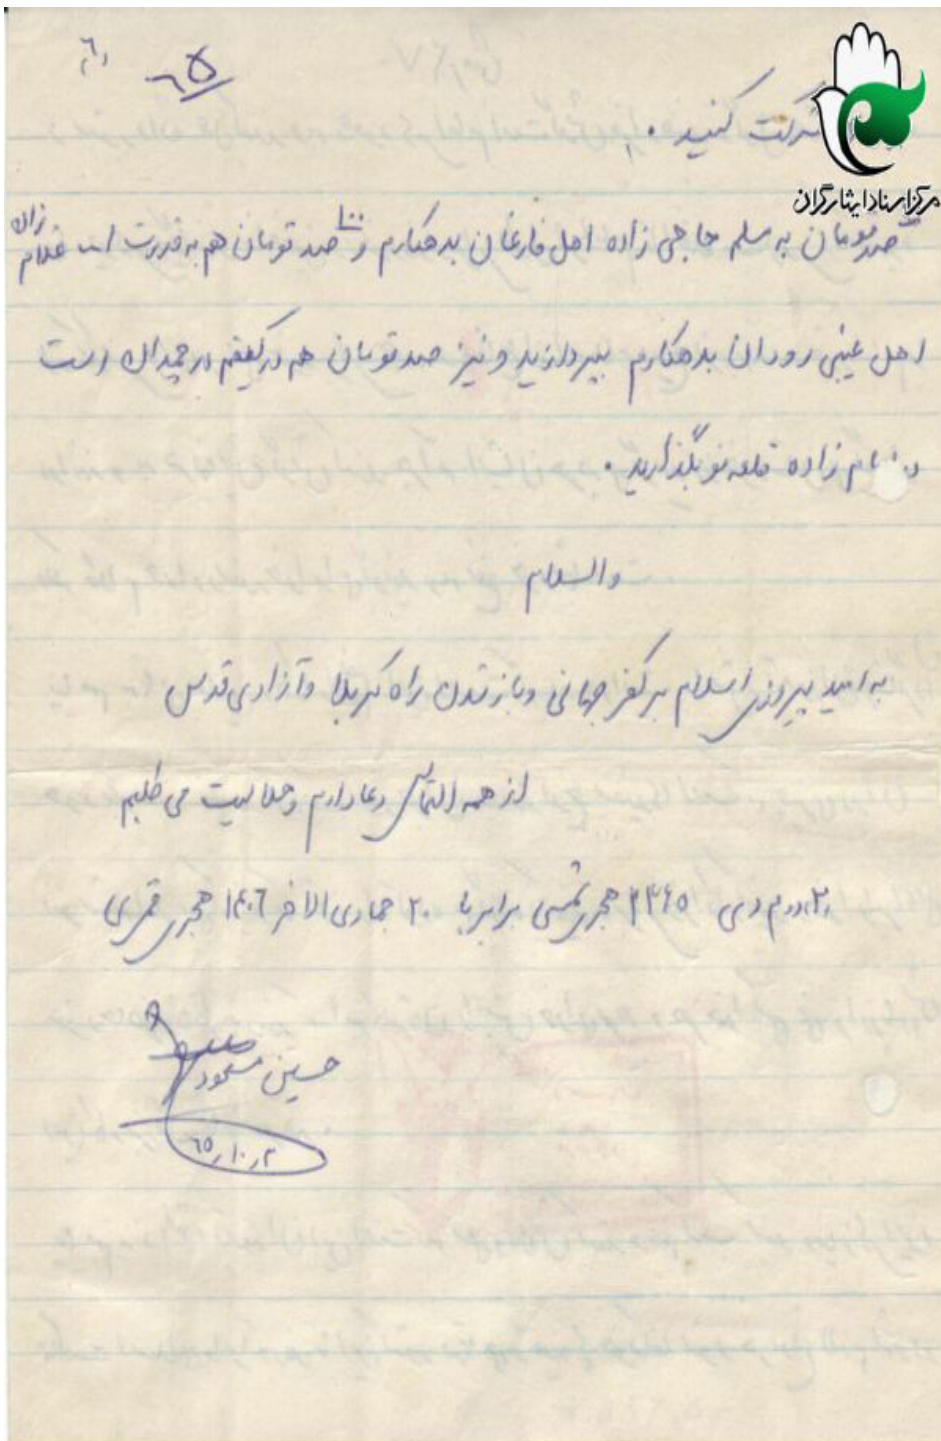 ۶۵
شرکت کنید .
مرکز اسناد ایثارگران
صد تومان به مسلم حاجی زاده اهل فارغان بدهکارم و ۱۰۰ صد تومان هم به قدرت اله غلام زاده
اهل غیبی رودان بدهکارم بپردازید و نیز صد تومان هم در کیفم در چمدان است
در امام زاده قلعه نو بگذارید .
والسلام
به امید پیروزی اسلام بر کفر جهانی و باز شدن راه کربلا و آزادی قدس
از همه التماس دعا دارم و حلالیت می طلبم
۲، دوم دی ۱۳۶۵ هجری شمسی برابر با ۲۰ جمادی الاخر ۱۴۰۶ هجری قمری
حسین مسعودی
۶۵/۱۰/۲